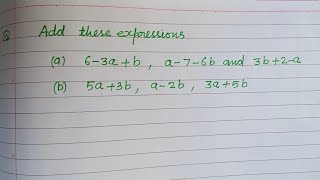 Q Add these expressions
(a) 6-3a+b , a-7-6b and 3b+2-a
(b) 5a+3b , a-2b , 3a+5b